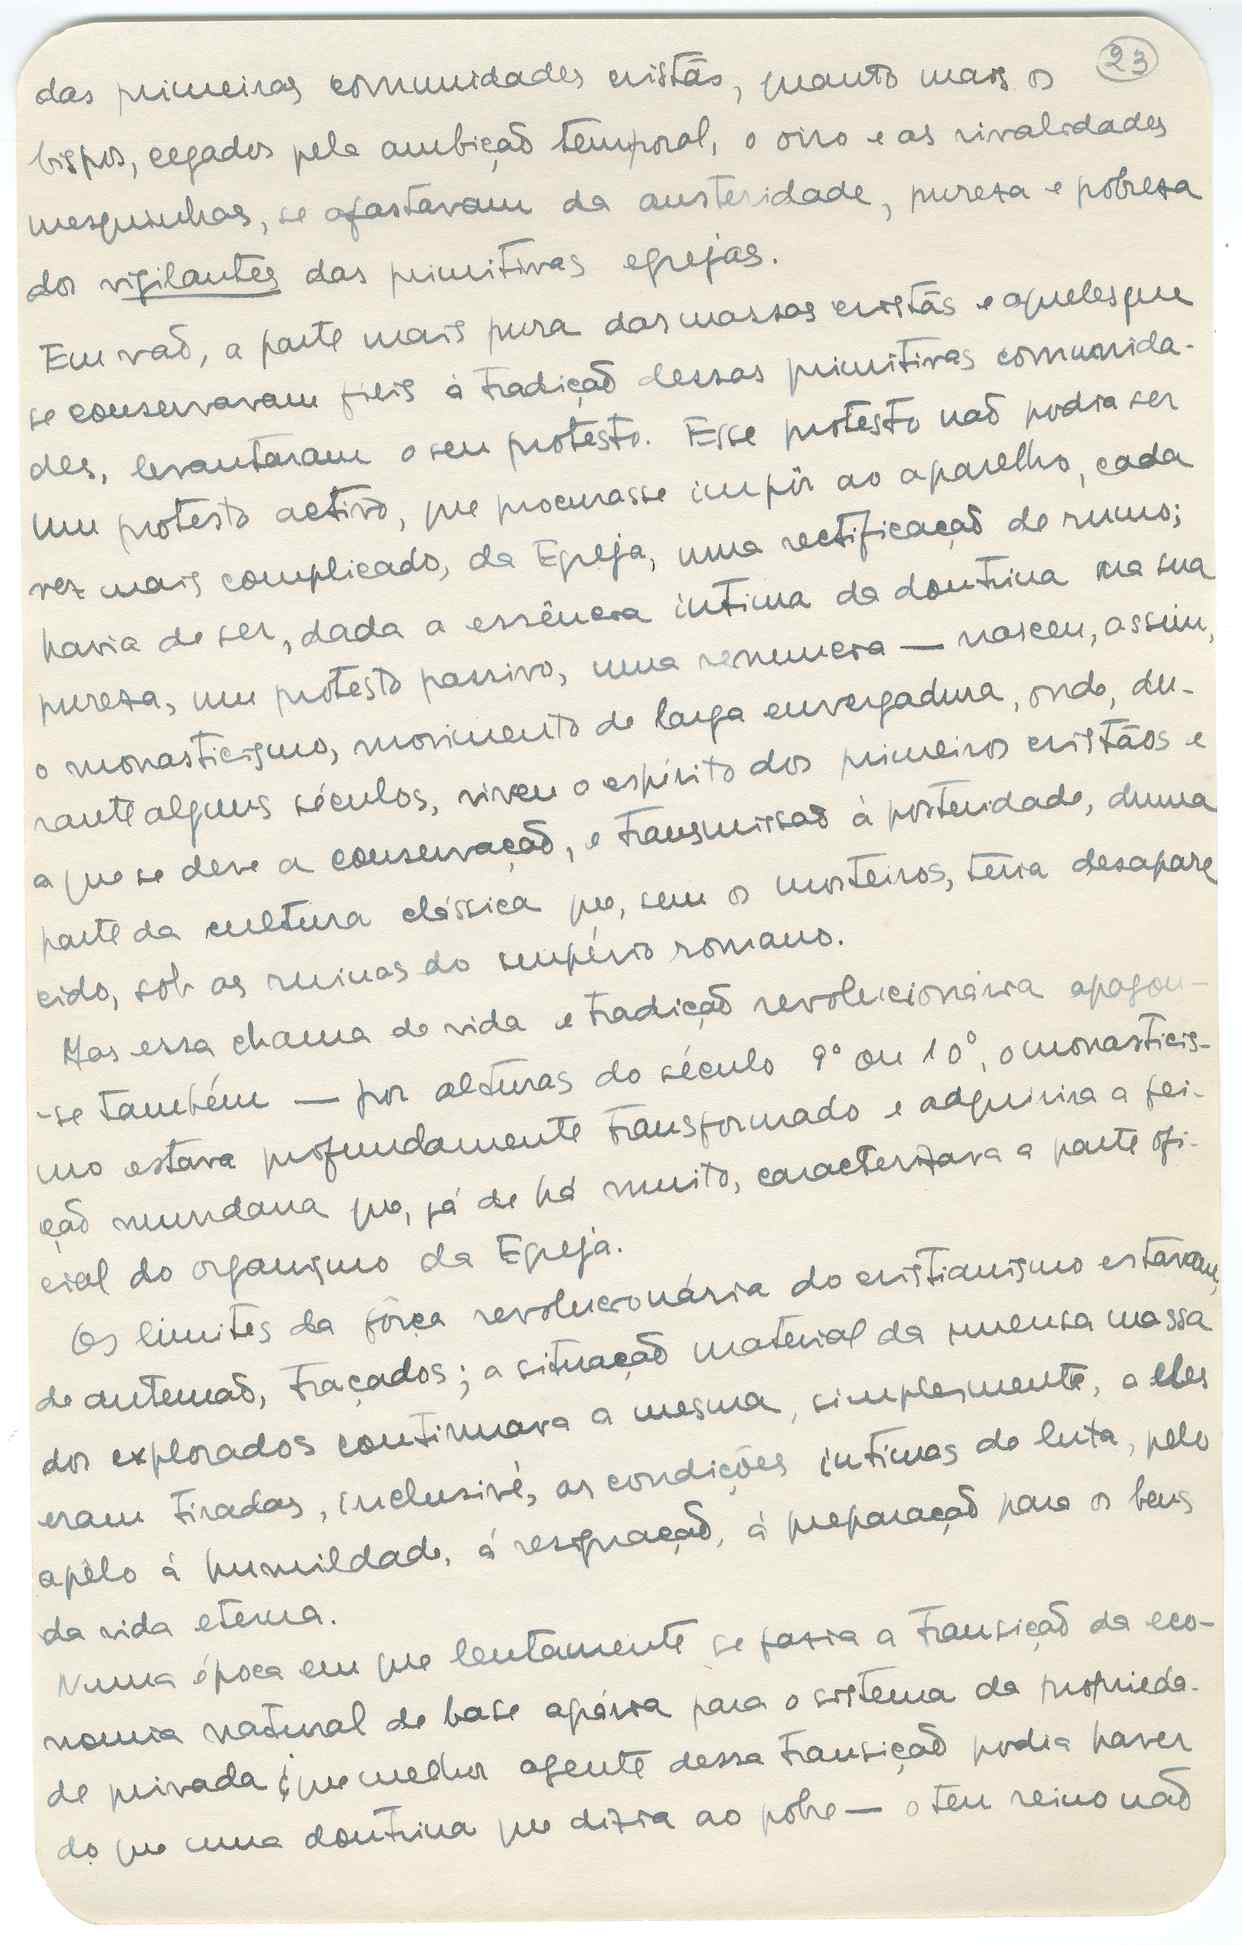 23
das primeiras comunidades cristãs, quanto mais os
bispos, cegados pela ambição temporal, o oiro e as rivalidades
mesquinhas, se afastavam da austeridade, pureza e pobreza
dos vigilantes das primitivas egrejas.
Em vão, a parte mais pura das massas cristãs e aqueles que
se conservavam fieis á tradição dessas primitivas comunida-
des, levantaram o seu protesto. Esse protesto não podia ser
um protesto activo, que procurasse impôr ao aparelho, cada
vez mais complicado, da Egreja, uma rectificação de rumo;
havia de ser, dada a essência íntima da doutrina na sua
pureza, um protesto passivo, uma renuncia — nasceu, assim,
o monasticismo, movimento de larga envergadura, onde, du-
rante alguns séculos, viveu o espírito dos primeiros cristãos e
a que se deve a conservação, e transmissão à posteridade, duma
parte da cultura clássica que, sem os mosteiros, teria desapare
cido, sob as ruinas do império romano.
Mas essa chama de vida e tradição revolucionária apagou-
-se também — por alturas do século 9º ou 10º, o monasticis-
mo estava profundamente transformado e adquirira a fei-
ção mundana que, já de há muito, caracterizava a parte ofi-
cial do organismo da Egreja.
Os limites da fôrça revolucionária do cristianismo estavam,
de antemão, traçados; a situação material da imensa massa
dos explorados continuava a mesma, simplesmente, a eles
eram tiradas, inclusivé, as condições íntimas de luta, pelo
apêlo á humildade, á resignação, á preparação para os bens
da vida eterna.
Numa época em que lentamente se fazia a transição da eco-
nomia natural de base agária para o sistema da proprieda-
de privada ¿que melhor agente dessa transição podia haver
do que uma doutrina que dizia ao pobre — o teu reino não